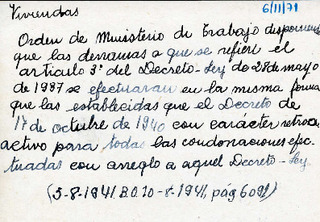 Viviendas
6/11/71
Orden de Ministerio de Trabajo disponiendo
que las derramas a que se refiere el
artículo 3º del Decreto-Ley de 28 de mayo
de 1937 se efectuarán en la misma forma
que las establecidas que el Decreto de
17 de octubre de 1940 con carácter retroa
activo para todas las condonaciones efec.
tuadas con arreglo a aquel Decreto-Ley
(5-8-1941 B.O. 10-8-1941, pág 6091)